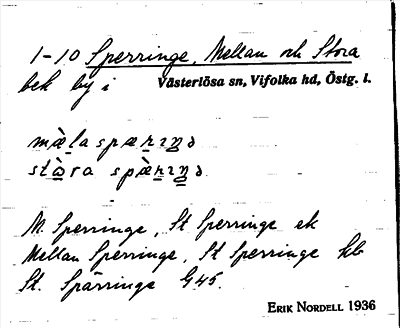 1-10 Sperringe, Mellan och Stora
bek by i Västerlösa sn, Vifolka hd, Östg. l.
mὰ̱laspæṟıŋ̱ə
stὼ̱ra spæ̀ṟıŋ̱ə
M. Sperringe, St Sperringe ek
Mellan Sperringe, St Sperringe kb
St. Spärringe G45.
ERIK NORDELL 1936